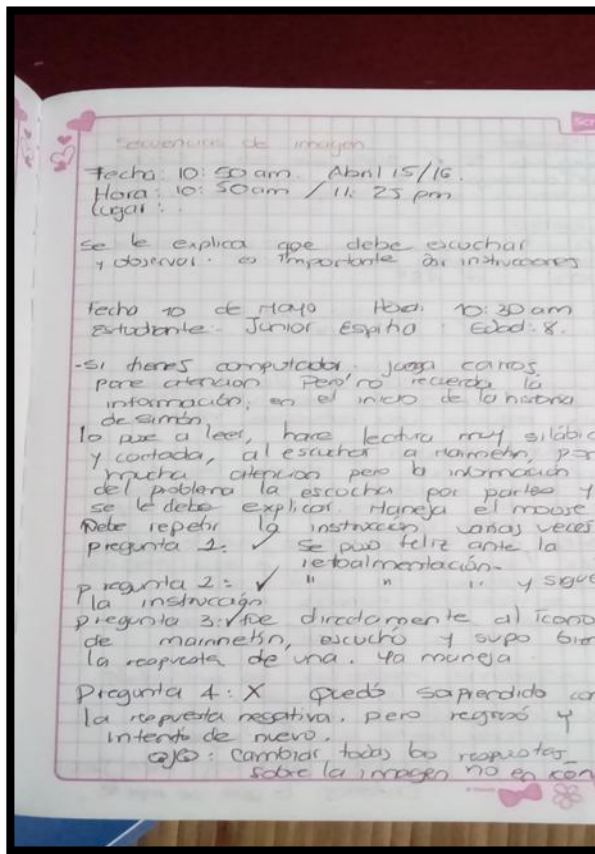 Secuencias de imagen
Fecha: 10:50 am. Abril 15/16.
Hora: 10:50am / 11:25 pm
Lugar:.
se le explica que debe escuchar
y observar. es importante dar instrucciones
Fecha 10 de Mayo Hora: 10:30 am
Estudiante: Junior Espitia Edad: 8.
-Si tienes computador. juega carros.
pone atencion Pero no recuerda la
información; en el inicio de la historia
de simón,
lo puse a leer, hace lectura muy silábic
y cortada, al escuchar a
mucha atencion pero la informacion
del problema la escucha por partes y
se le debe explicar. Maneja el mouse
Debe repetir la instrucción varias veces
pregunta 1: ✓ se puso feliz ante la
retoalmentación-
pregunta 2: ✓ " " " y sigue
la instrucción
pregunta 3: ✓ fue directamente al ícono
de escuchó y supo bien
la respuesta de una. ya maneja
Pregunta 4: X quedó soprendido con
la respuesta negativa. pero regresó y
intento de nuevo.
ojo: cambiar todas las respuestas
sobre la imagen no en